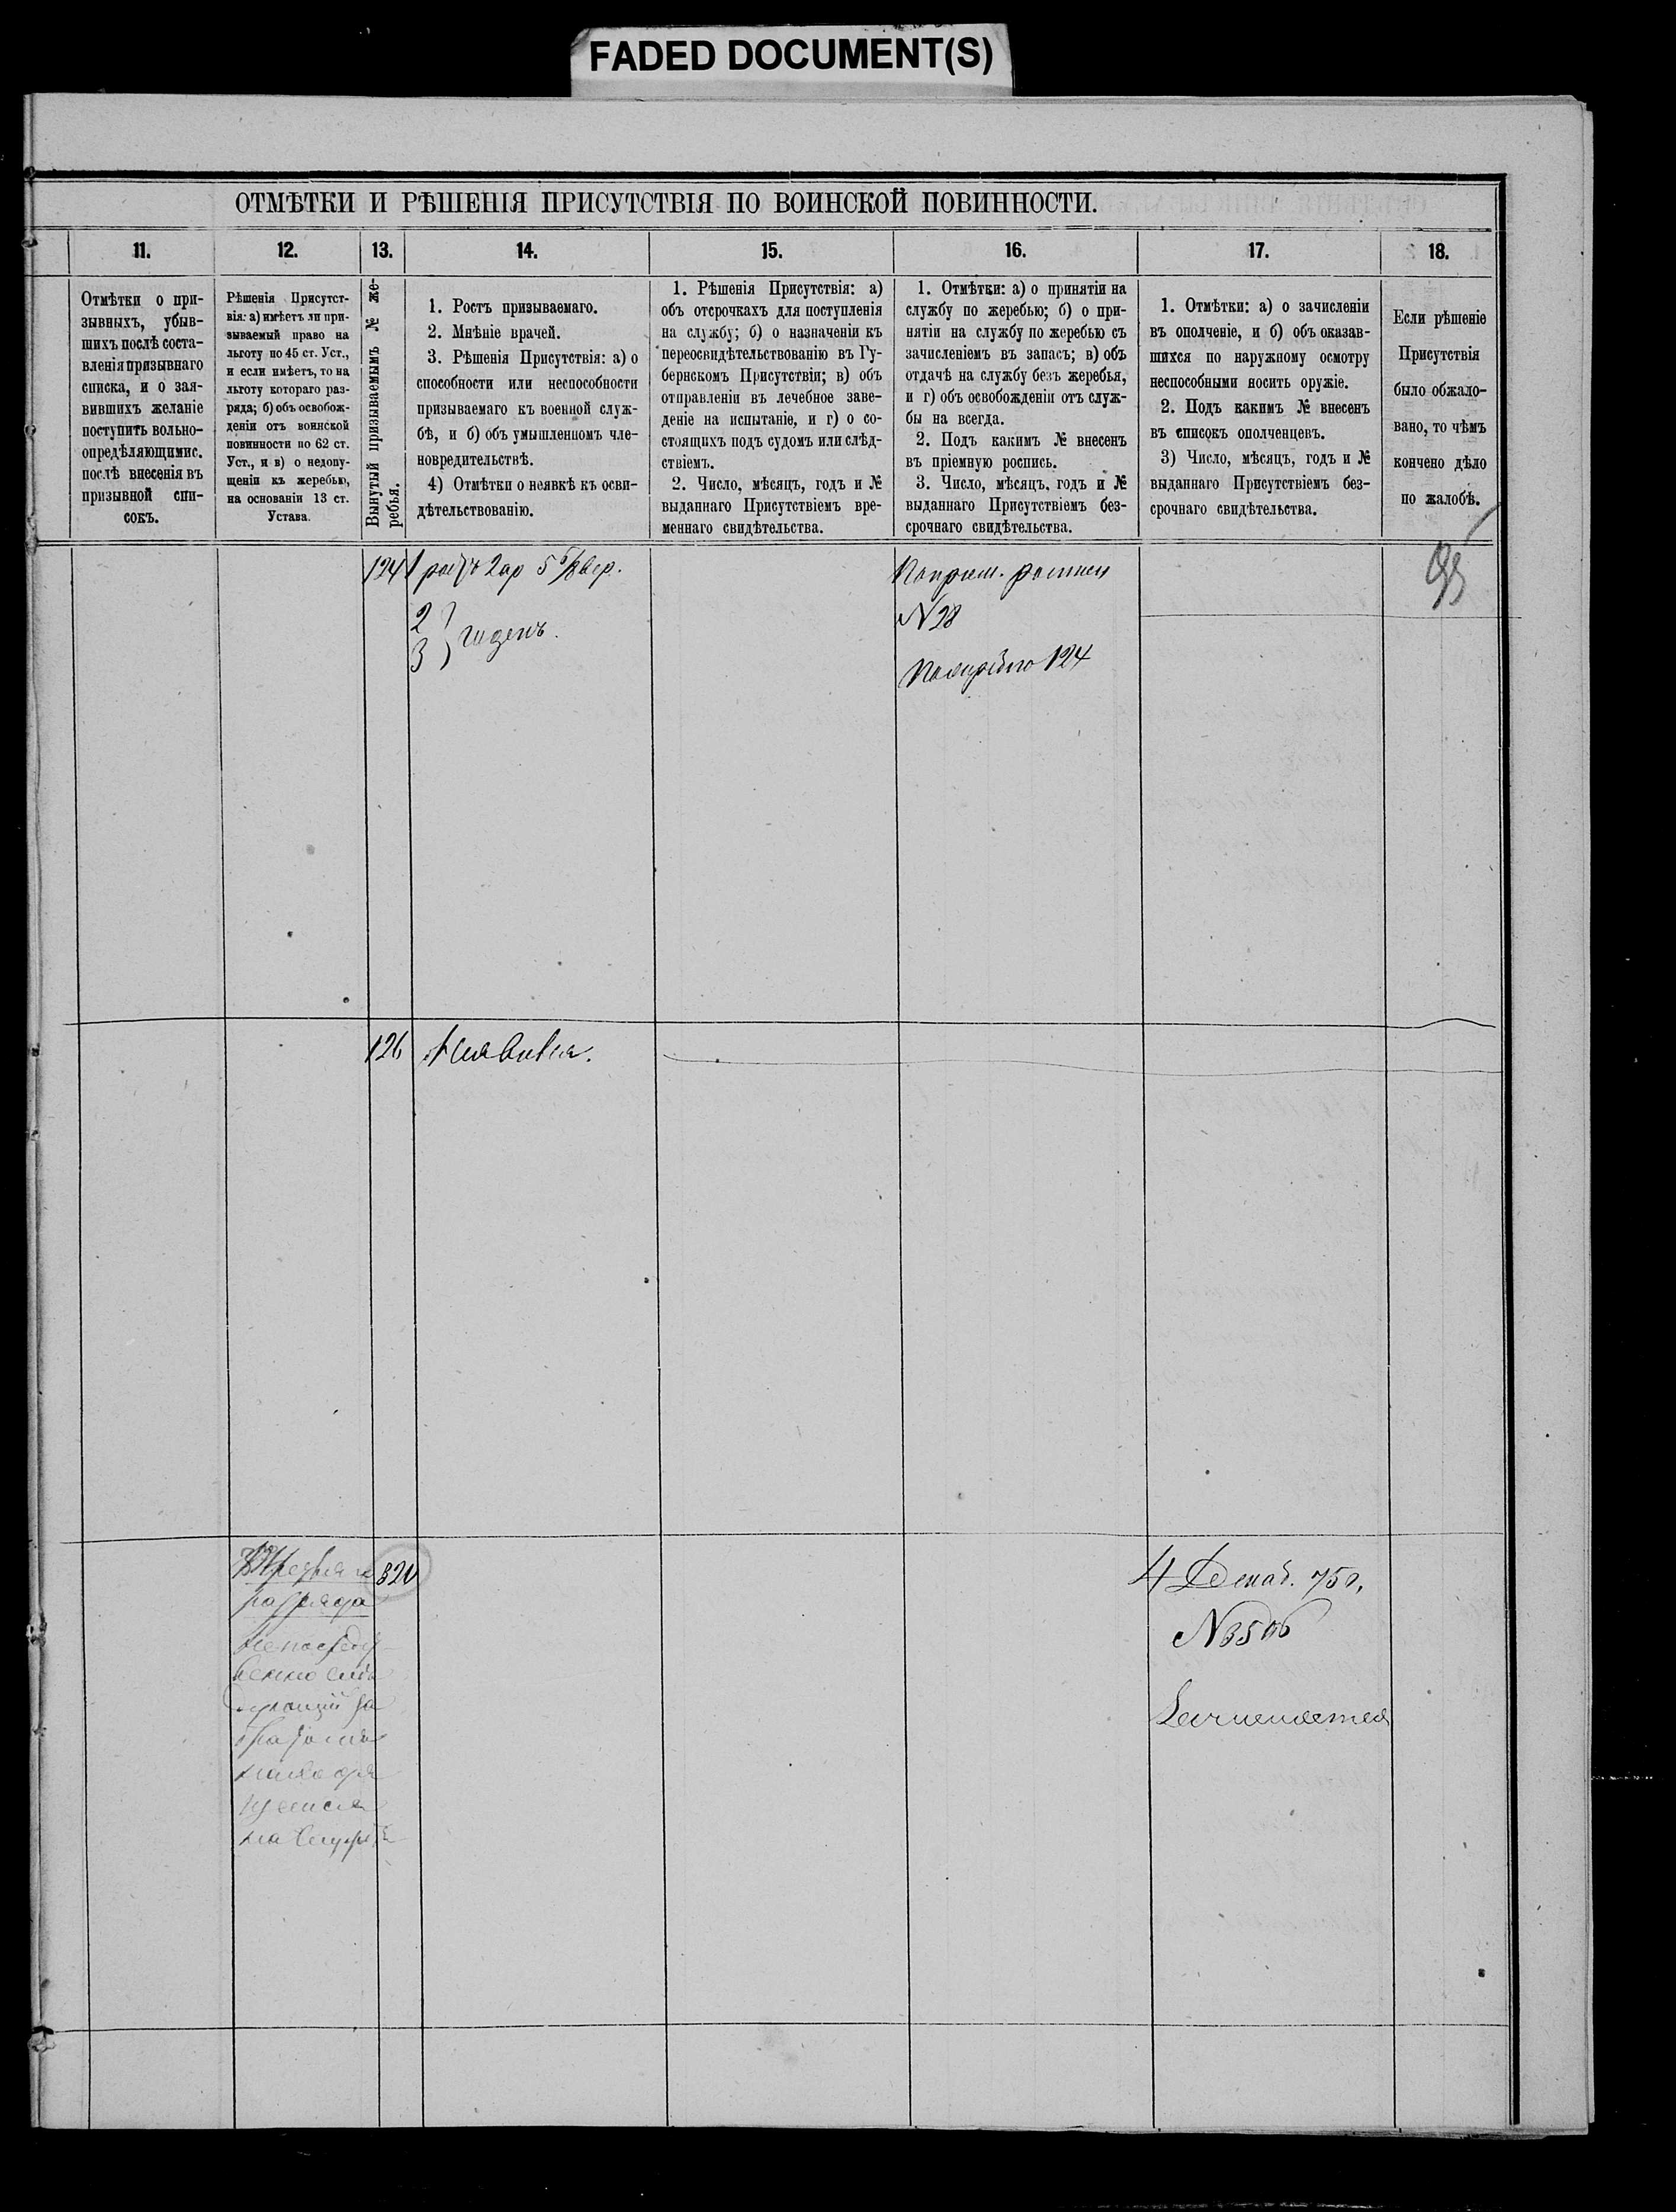 FADED DOCUMENT(S)
ОТМѢТКИ И РѢШЕНІЯ ПРИСУТСТВІЯ ПО ВОИНСКОЙ ПОВИННОСТИ.
11.
Отмѣтки о при-
зывныхъ, убыв-
шихъ послѣ соста-
вленія призывнаго
списка, и о зая-
вившихъ желаніе
поступить вольно-
опредѣляющимис.
послѣ внесенія въ
призывной спи-
сокъ.
12.
Рѣшенія Присутст-
вія: а) имѣетъ ли при-
зываемый право на
льготу по 45 ст. Уст.,
и если имѣетъ, то на
льготу котораго раз-
ряда; б) объ освобож-
деніи отъ воинской
повинности по 62 ст.
Уст., и в) о недопу-
щеніи къ жеребью,
на основаніи 13 ст.
Устава.
13.
Вынутый призываемымъ № же-
ребья.
14.
1. Ростъ призываемаго.
2. Мнѣніе врачей.
3. Рѣшенія Присутствія: а) о
способности или неспособности
призываемаго къ военной служ-
бѣ, и б) объ умышленномъ чле-
новредительствѣ.
4) Отмѣтки о неявкѣ къ осви-
дѣтельствованію.
15.
1. Рѣшенія Присутствія: а)
объ отсрочкахъ для поступленія
на службу; б) о назначеніи къ
переосвидѣтельствованію въ Гу-
бернскомъ Присутствіи; в) объ
отправленіи въ лечебное заве-
деніе на испытаніе, и г) о со-
стоящихъ подъ судомъ или слѣд-
ствіемъ.
2. Число, мѣсяцъ, годъ и №
выданнаго Присутствіемъ вре-
меннаго свидѣтельства.
16.
1. Отмѣтки: а) о принятіи на
службу по жеребью; б) о при-
нятіи на службу по жеребью съ
зачисленіемъ въ запасъ; в) объ
отдачѣ на службу безъ жеребья,
и г) объ освобожденіи отъ служ-
бы на всегда.
2. Подъ какимъ № внесенъ
въ пріемную роспись.
3. Число, мѣсяцъ, годъ и №
выданнаго Присутствіемъ без-
срочнаго свидѣтельства.
17.
1. Отмѣтки: а) о зачисленіи
въ ополченіе, и б) объ оказав-
шихся по наружному осмотру
неспособными носить оружіе.
2. Подъ какимъ № внесенъ
въ списокъ ополченцевъ.
3) Число, мѣсяцъ, годъ и №
выданнаго Присутствіемъ без-
срочнаго свидѣтельства.
18.
Если рѣшеніе
Присутствія
было обжало-
вано, то чѣмъ
кончено дѣло
по жалобѣ.
124
1 ростъ 2 ар 5 вер.
2
3 } годенъ.
По роспис
№ 28
124
126
Неявился.
разряда
непосредст
венно слѣ
дующій за
братомъ
находя
щемся
на службѣ
4 Декаб. 75 г.
№